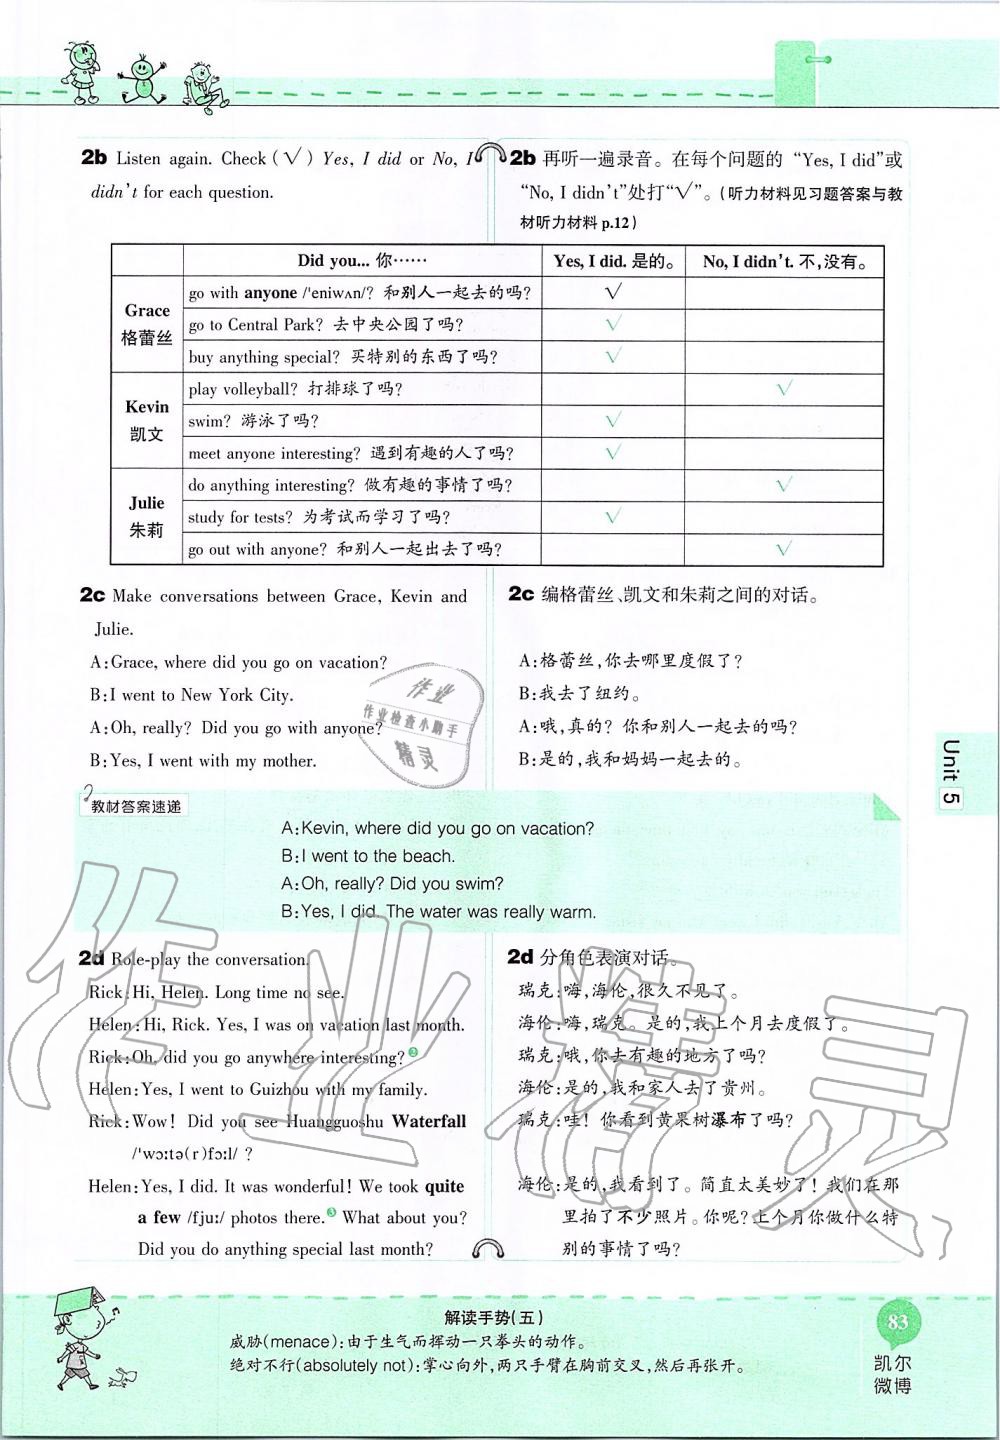 2b Listen again. Check (√) Yes, I did or No, I
didn't for each question.
2b 再听一遍录音。在每个问题的 “Yes, I did”或
“No, I didn't”处打“√”。(听力材料见习题答案与教
材听力材料 p.12)
Did you... 你…… Yes, I did. 是的。 No, I didn't. 不,没有。
Grace
格蕾丝
go with anyone /'eniwʌn/? 和别人一起去的吗? √
go to Central Park? 去中央公园了吗? √
buy anything special? 买特别的东西了吗? √
Kevin
凯文
play volleyball? 打排球了吗? √
swim? 游泳了吗? √
meet anyone interesting? 遇到有趣的人了吗? √
Julie
朱莉
do anything interesting? 做有趣的事情了吗? √
study for tests? 为考试而学习了吗? √
go out with anyone? 和别人一起出去了吗? √
2c Make conversations between Grace, Kevin and
Julie.
A:Grace, where did you go on vacation?
B:I went to New York City.
A:Oh, really? Did you go with anyone?
B:Yes, I went with my mother.
2c 编格蕾丝、凯文和朱莉之间的对话。
A:格蕾丝,你去哪里度假了?
B:我去了纽约。
A:哦,真的? 你和别人一起去的吗?
B:是的,我和妈妈一起去的。
作业
作业检查小助手
精灵
Unit 5
教材答案速递
A:Kevin, where did you go on vacation?
B:I went to the beach.
A:Oh, really? Did you swim?
B:Yes, I did. The water was really warm.
2d Role-play the conversation.
Rick:Hi, Helen. Long time no see.
Helen:Hi, Rick. Yes, I was on vacation last month.
Rick:Oh, did you go anywhere interesting?②
Helen:Yes, I went to Guizhou with my family.
Rick:Wow! Did you see Huangguoshu Waterfall
/'wɔːtə(r)fɔːl/ ?
Helen:Yes, I did. It was wonderful! We took quite
a few /fjuː/ photos there.③ What about you?
Did you do anything special last month?
2d 分角色表演对话。
瑞克:嗨,海伦,很久不见了。
海伦:嗨,瑞克。是的,我上个月去度假了。
瑞克:哦,你去有趣的地方了吗?
海伦:是的,我和家人去了贵州。
瑞克:哇! 你看到黄果树瀑布了吗?
海伦:是的,我看到了。简直太美妙了! 我们在那
里拍了不少照片。你呢? 上个月你做什么特
别的事情了吗?
作业精灵
解读手势(五)
威胁(menace):由于生气而挥动一只拳头的动作。
绝对不行(absolutely not):掌心向外,两只手臂在胸前交叉,然后再张开。
83
凯尔
微博